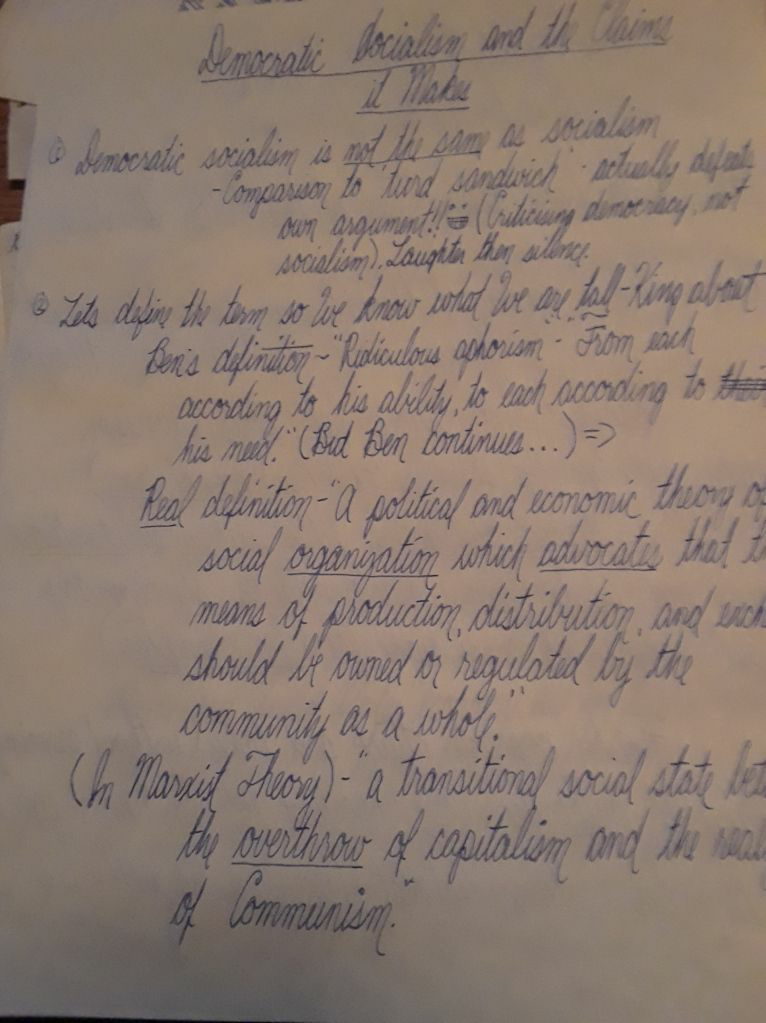 Democratic Socialism and the Claims
it Makes
① Democratic socialism is not the same as socialism
-Comparison to "turd sandwich" - actually defeats
own argument!! (Criticising democracy, not
socialism). Laughter then silence.
② Lets define the term so We know what We are tall-King about
Ben's definition - "Ridiculous aphorism" - "From each
according to his ability, to each according to
his need." (But Ben continues...) =>
Real definition - "A political and economic theory of
social organization which advocates that
means of production, distribution, and
should be owned or regulated by the
community as a whole."
(In Marxist Theory) - "a transitional social state
the overthrow of capitalism and the
of Communism."